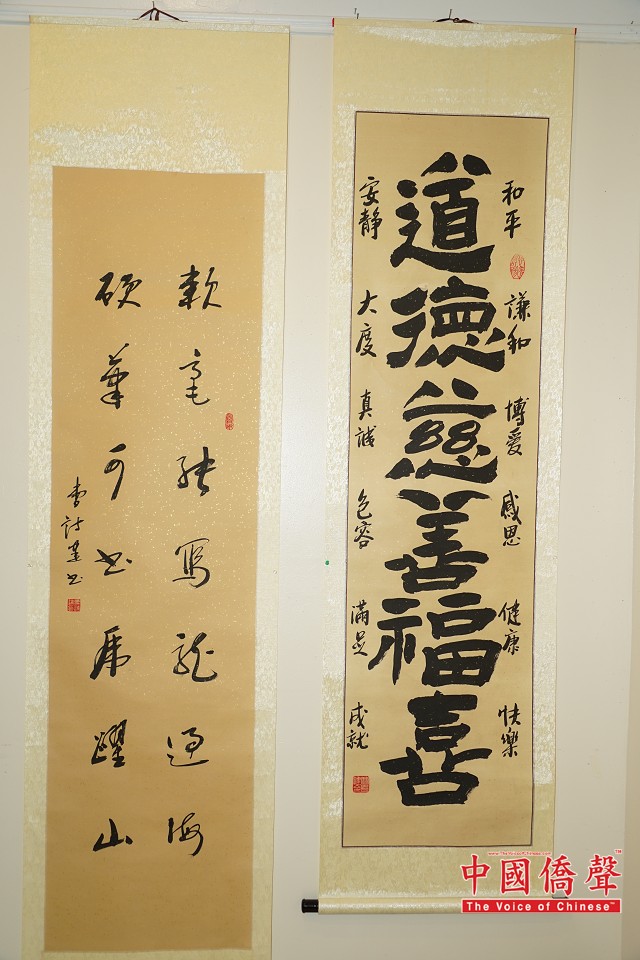 道德慈善福喜
和平 謙和 博愛 感恩 健康 快樂
安静 大度 真诚 包容 滿足 成就
軟毫能写龍過海
硬筆可书虎躍山
中國僑聲
The Voice of Chinese™